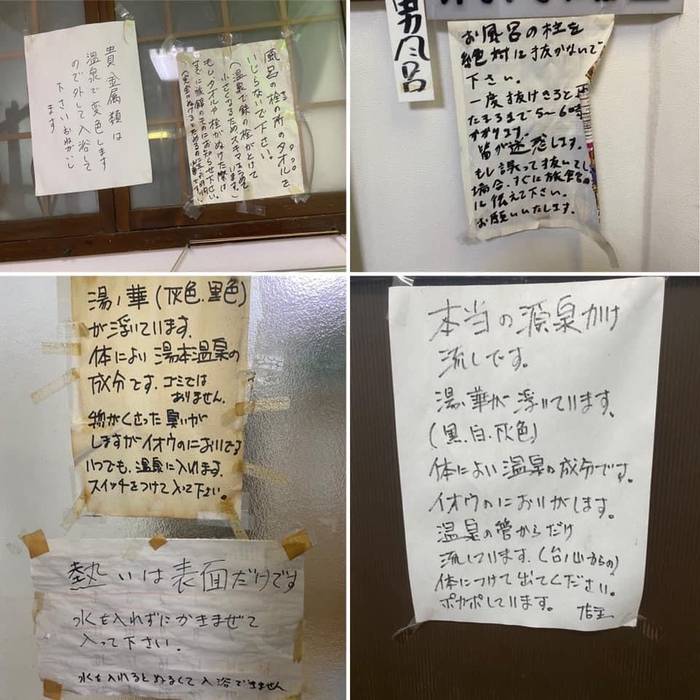 貴金属類は
温泉で変色します
ので外して入浴して
下さいおねがいし
ます
風呂の栓の所のタオルを
いじらないで下さい。
(温泉で鉄の栓がとけて
小さくなるためスキマはうめています。)
もしタオルや栓がぬけた際は
すぐに旅館のものにお知らせ下さい。
男風呂
お風呂の栓を
絶対に抜かないで
下さい。
一度抜けきると再
たまるまで5〜6時
かかります。
皆が迷惑します。
もし誤って抜いてし
場合、すぐに旅館
に伝えて下さい。
お願いいたします。
湯ノ華(灰色.黒色)
が浮いています。
体によい湯本温泉の
成分です。ゴミでは
ありません。
物がくさった臭いが
しますがイオウのにおいです
いつでも、温泉に入れます。
スイッチをつけて入って下さい。
熱いは表面だけです
水を入れずにかきまぜて
入って下さい.
水を入れるとぬるくて入浴できません
本当の源泉かけ
流しです。
湯ノ華が浮いています。
(黒.白.灰色)
体によい温泉の成分です。
イオウのにおいがします。
温泉の管からだけ
流しています。(台ノ山からの)
体につけて出てください。
ポカポカしています。 店主